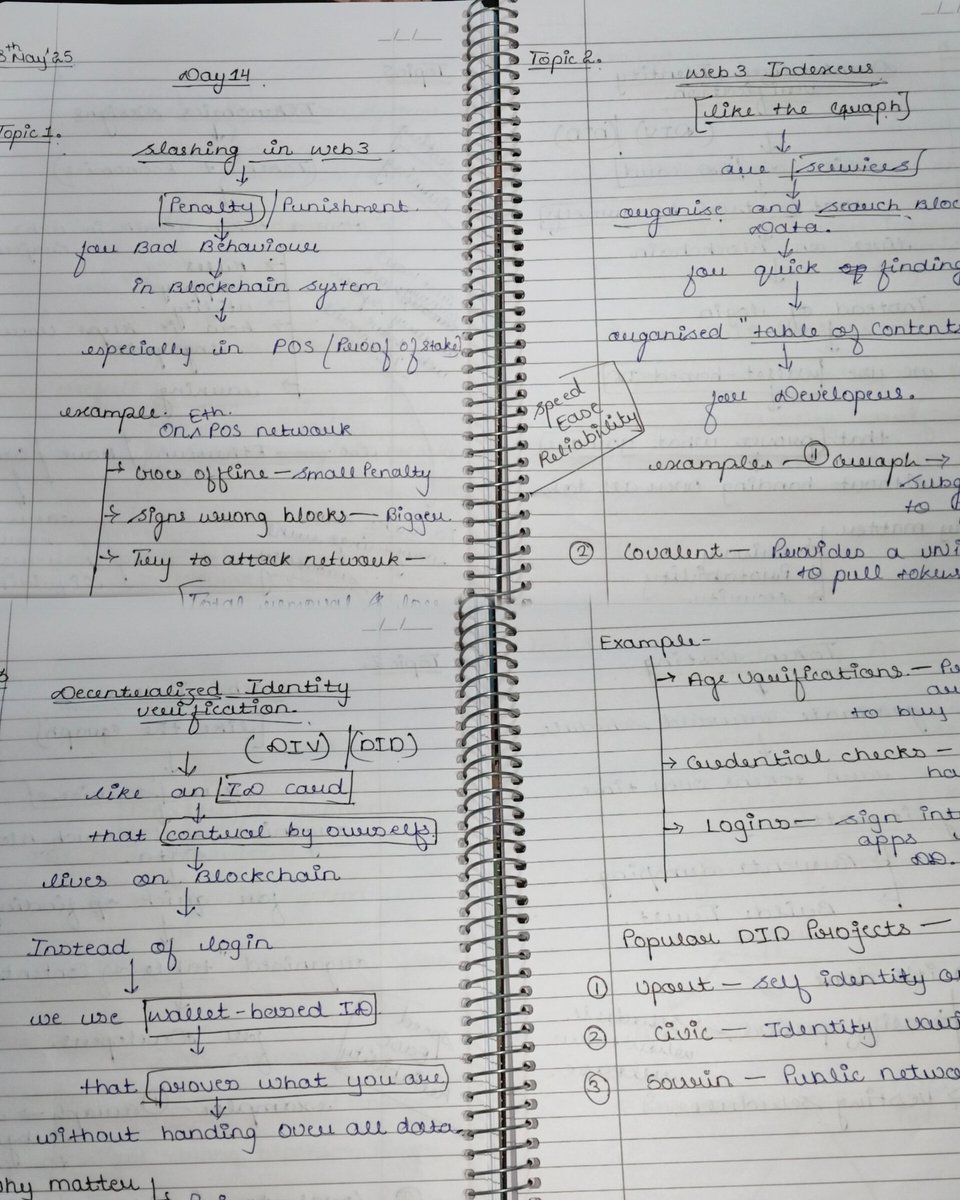 May'25
Day 14
Topic 1.
Slashing in Web3
Penalty / Punishment
for Bad Behaviour
in Blockchain System
especially in POS (Proof of Stake)
example.
On Eth. POS network
Goes offline - Small Penalty
Signs wrong blocks - Bigger.
Try to attack network -
Total removal & lose
Topic 2.
Web 3 Indexers
[like the Graph]
are services
organise and search Bloc
Data.
for quick finding
organised "table of Contents
for Developers.
Speed
Ease
Reliability
examples - ① Graph →
Subg
to
② Covalent - Provides a uni
to pull tokens
Decentralized Identity
Verification.
(DIV) / (DID)
like an ID card
that control by ourselfs
lives on Blockchain
Instead of login
we use wallet-based ID
that proves what you are
without handing over all data.
hy matter
Example -
Age varifications -
to buy
Credential checks -
ha
Logins - sign int
apps
DD.
Popular DID Projects -
① Uport - self identity
② Civic - Identity
③ Sovrin - Public netwo